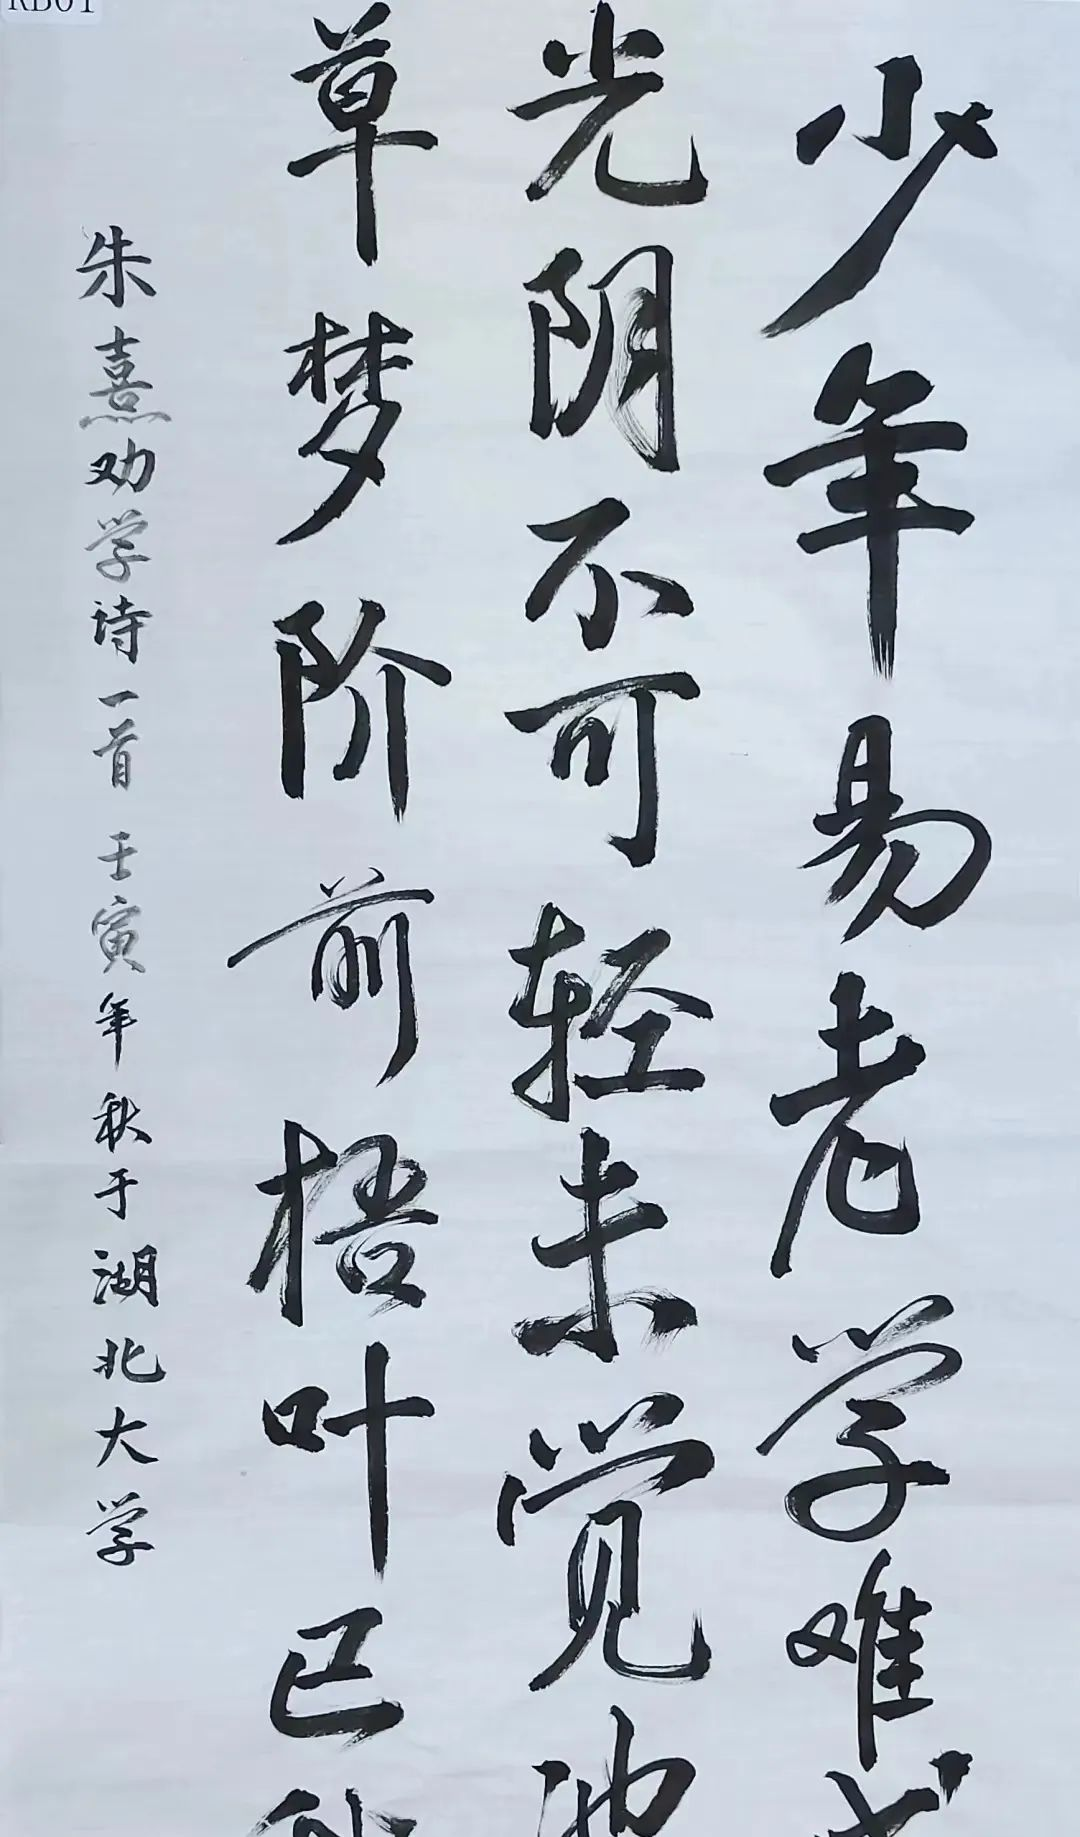 少年易老学难成
光阴不可轻未觉池
草梦阶前梧叶已秋
朱熹劝学诗一首 壬寅年秋于湖北大学